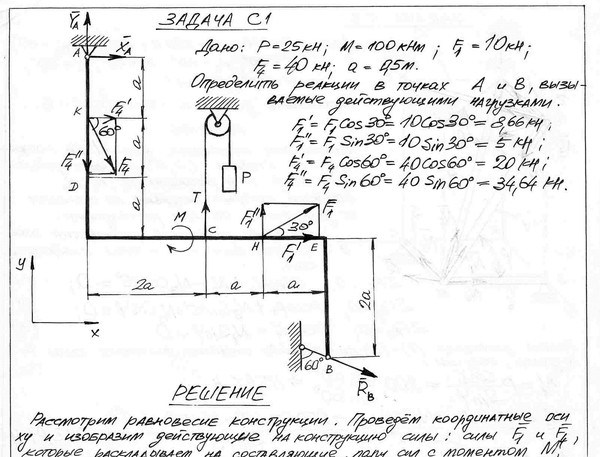 ЗАДАЧА С1
Дано: P=25кН; M=100кНм; F₁=10кН;
F₄=40кН; a=0,5м.
Определить реакции в точках А и В, вызы-
ваемые действующими нагрузками.
F₁'=F₁Cos30°=10Cos30°=8,66кН;
F₁"=F₁Sin30°=10Sin30°=5кН;
F₄'=F₄Cos60°=40Cos60°=20кН;
F₄"=F₄Sin60°=40Sin60°=34,64кН.
Y̅A
A
X̅A
a
K
F₄'
60°
a
F₄"
F₄
D
a
P
T
M
C
F₁"
F̅₁
30°
H
F₁'
E
y
x
2a
a
a
2a
60°
B
R̅B
РЕШЕНИЕ
Рассмотрим равновесие конструкции. Проведём координатные оси
xy и изобразим действующие на конструкцию силы: силы F̅₁ и F̅₄,
которые раскладывает на составляющие, пару сил с моментом M